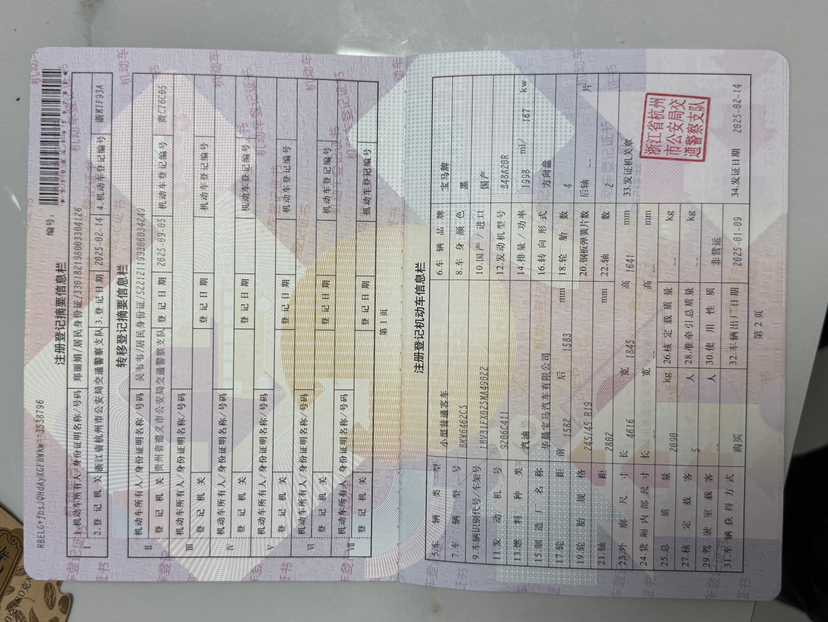 编号:
注册登记摘要信息栏
Ⅰ 1.机动车所有人/身份证明名称/号码 邓丽娟/居民身份证/330182198003304126
2.登记机关 浙江省杭州市公安局交通警察支队 3.登记日期 2025-02-14 4.机动车登记编号 浙K1F93A
转移登记摘要信息栏
Ⅱ 机动车所有人/身份证明名称/号码 /居民身份证/
登记机关 贵州省遵义市公安局交通警察支队 登记日期 2025-09-05 机动车登记编号 贵C76C05
Ⅲ 机动车所有人/身份证明名称/号码
登记机关 登记日期 机动车登记编号
Ⅳ 机动车所有人/身份证明名称/号码
登记机关 登记日期 机动车登记编号
Ⅴ 机动车所有人/身份证明名称/号码
登记机关 登记日期 机动车登记编号
Ⅵ 机动车所有人/身份证明名称/号码
登记机关 登记日期 机动车登记编号
Ⅶ 机动车所有人/身份证明名称/号码
登记机关 登记日期 机动车登记编号
第 1 页
注册登记机动车信息栏
5.车辆类型 小型普通客车 6.车辆品牌 宝马牌
7.车辆型号 BMW6462CS 8.车身颜色 黑
9.车辆识别代号/车架号 10.国产/进口 国产
11.发动机号 9206C411 12.发动机型号 B48A20R
13.燃料种类 汽油 14.排量/功率 1998 ml/ 167 kw
15.制造厂名称 华晨宝马汽车有限公司 16.转向形式 方向盘
17.轮距 前 1582 后 1583 mm 18.轮胎数 4
19.轮胎规格 245/45 R19 20.钢板弹簧片数 后轴 -- 片
21.轴距 2802 mm 22.轴数 2
23.外廓尺寸 长 4616 宽 1845 高 1641 mm 33.发证机关章
24.货厢内部尺寸 长 -- 宽 -- 高 -- mm
25.总质量 2090 kg 26.核定载质量 -- kg
27.核定载客 5 人 28.准牵引总质量 -- kg
29.驾驶室载客 -- 人 30.使用性质 非营运
31.车辆获得方式 购买 32.车辆出厂日期 2025-01-09 34.发证日期 2025-02-14
浙江省杭州
市公安局交
通警察支队
第 2 页